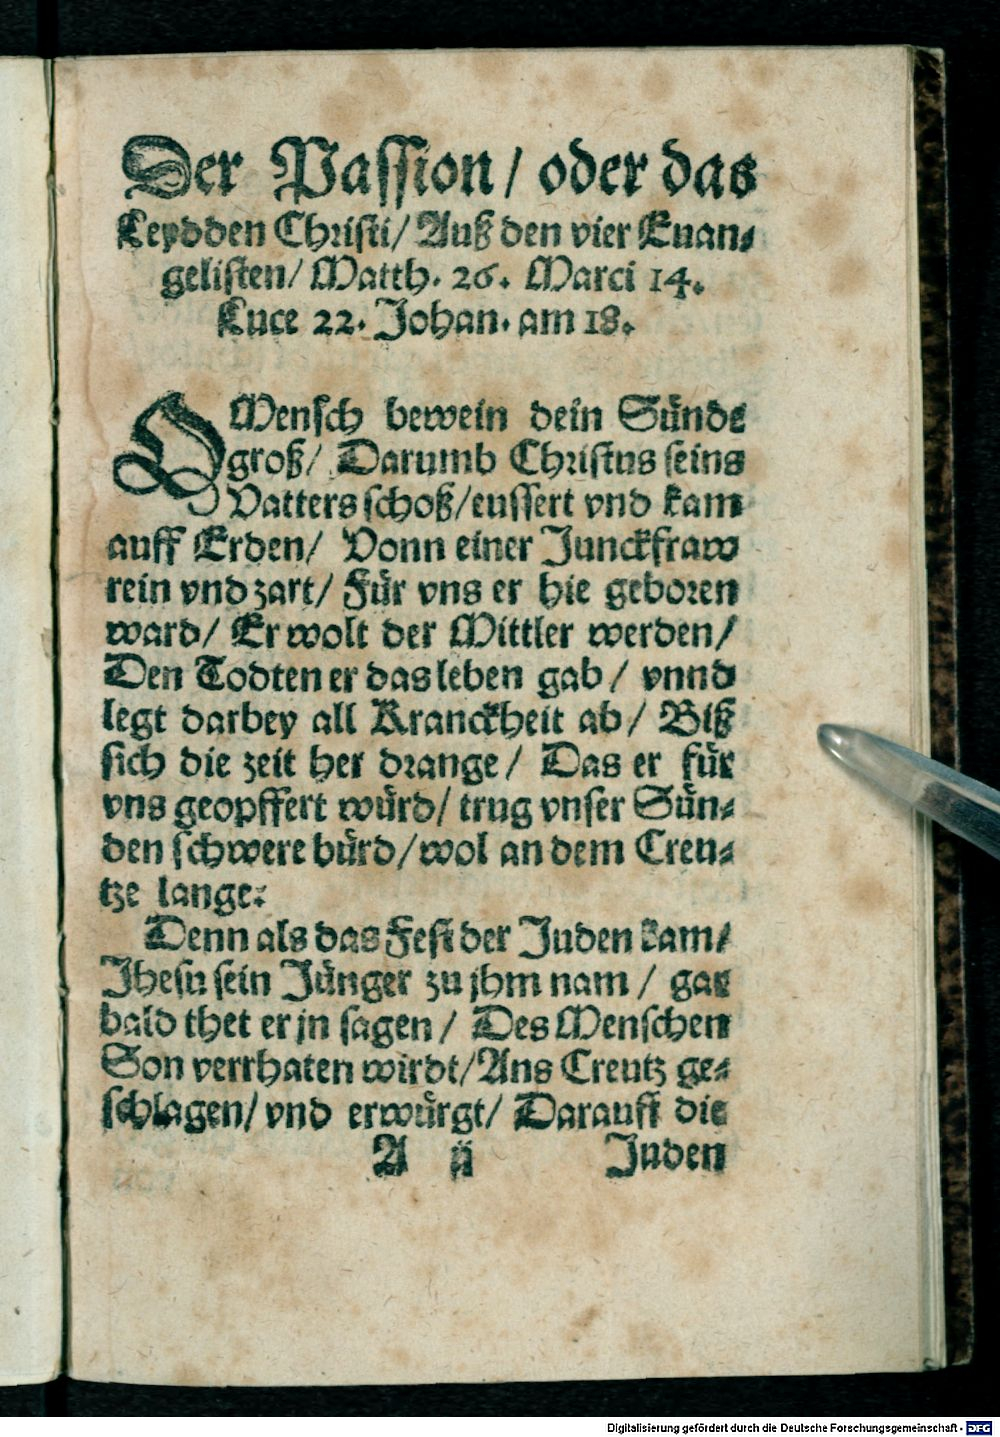 Der Passion / oder das
Leydden Christi / Auß den vier Euan⸗
gelisten / Matth. 26. Marci 14.
Luce 22. Johan. am 18.
O Mensch bewein dein Sünde
groß / Darumb Christus seins
Vatters schoß / eussert vnd kam
auff Erden / Vonn einer Junckfraw
rein vnd zart / Für vns er hie geboren
ward / Er wolt der Mittler werden /
Den Todten er das leben gab / vnnd
legt darbey all Kranckheit ab / Biß
sich die zeit her drange / Das er für
vns geopffert würd / trug vnser Sün⸗
den schwere bürd / wol an dem Creu⸗
tze lange:
Denn als das Fest der Juden kam /
Jhesu sein Jünger zu jhm nam / gar
bald thet er jn sagen / Des Menschen
Son verrhaten wirdt / Ans Creutz ge⸗
schlagen / vnd erwürgt / Darauff die
A ij Juden
Digitalisierung gefördert durch die Deutsche Forschungsgemeinschaft - DFG